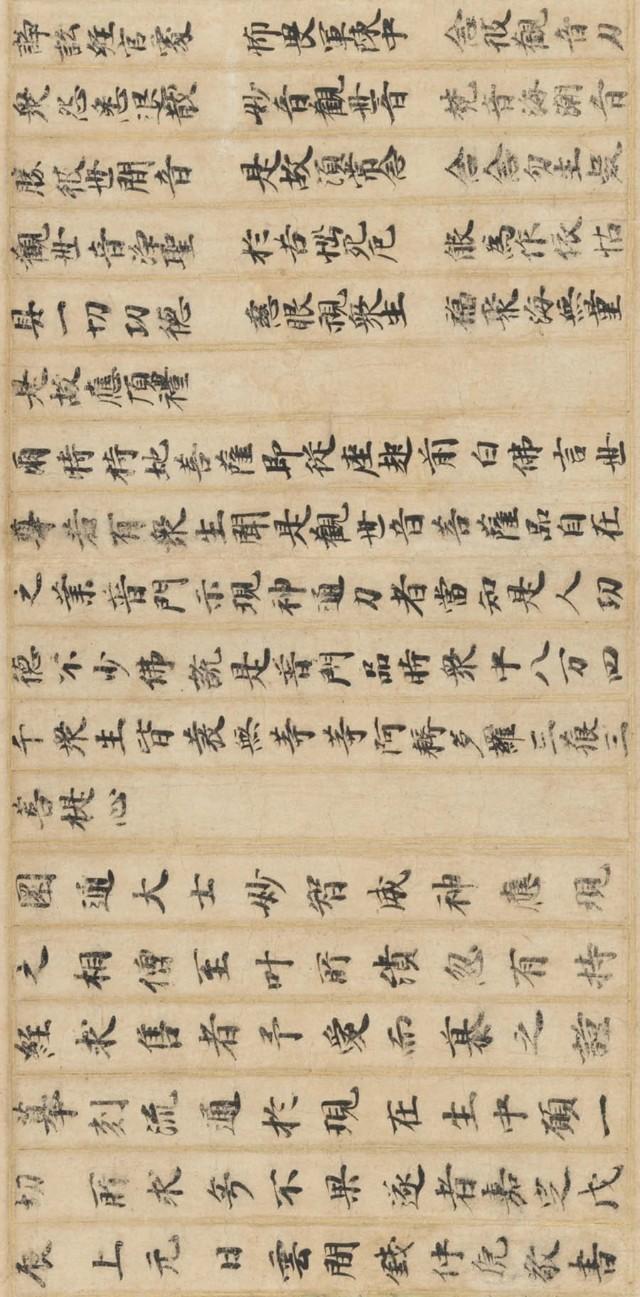 諍訟經官處 怖畏軍陣中 念彼觀音力
衆怨悉退散 妙音觀世音 梵音海潮音
勝彼世間音 是故須常念 念念勿生疑
觀世音淨聖 於苦惱死厄 能為作依怙
具一切功德 慈眼視衆生 福聚海無量
是故應頂禮
爾時持地菩薩即從座起前白佛言世
尊若有衆生聞是觀世音菩薩品自在
之業普門示現神通力者當知是人功
德不少佛說是普門品時衆中八万四
千衆生皆發無等等阿耨多羅三藐三
菩提心
圓通大士妙智威神應現
之相傳至叶所忽有持
經求售者予愛而慕之謹
摹刻流通於現在生中願一
切所求無不果遂者嘉定戊
辰上元日雲間錢仲虎敬書